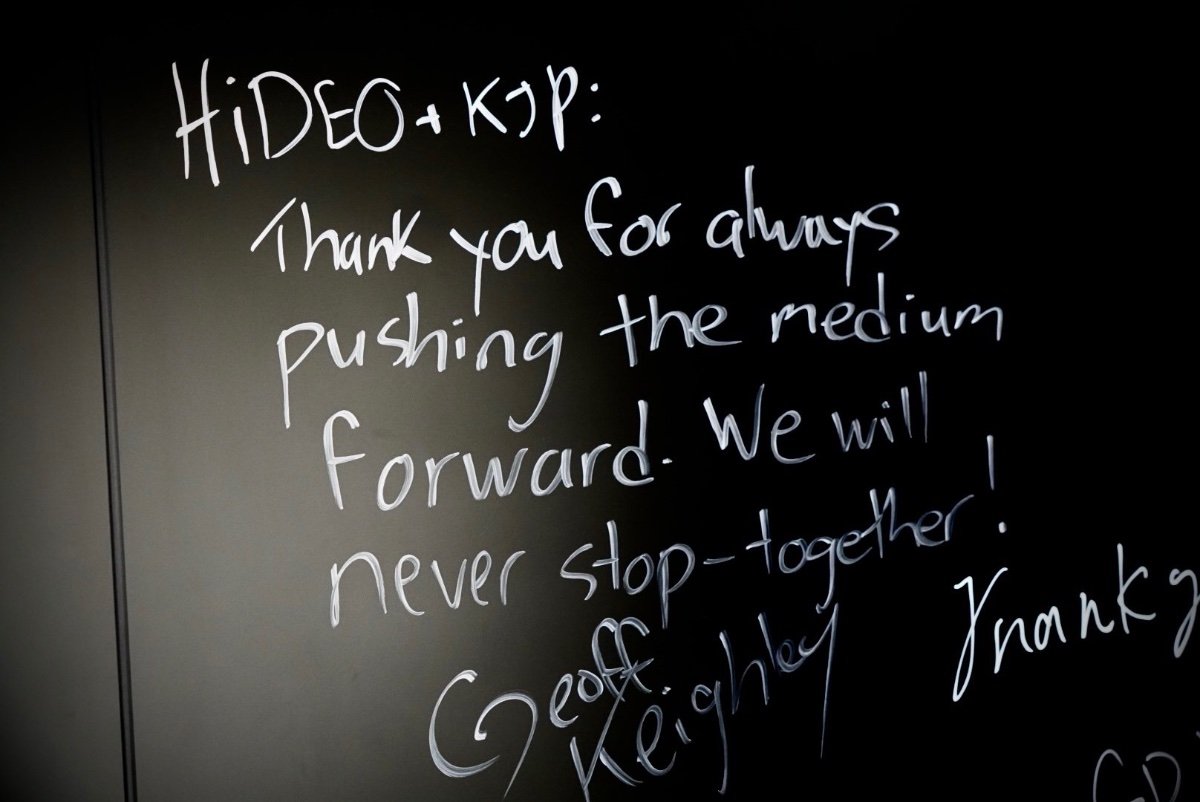 HiDEO + KJP:
Thank you for always
pushing the medium
forward. We will
never stop-together!
Geoff
Keighley
Thank